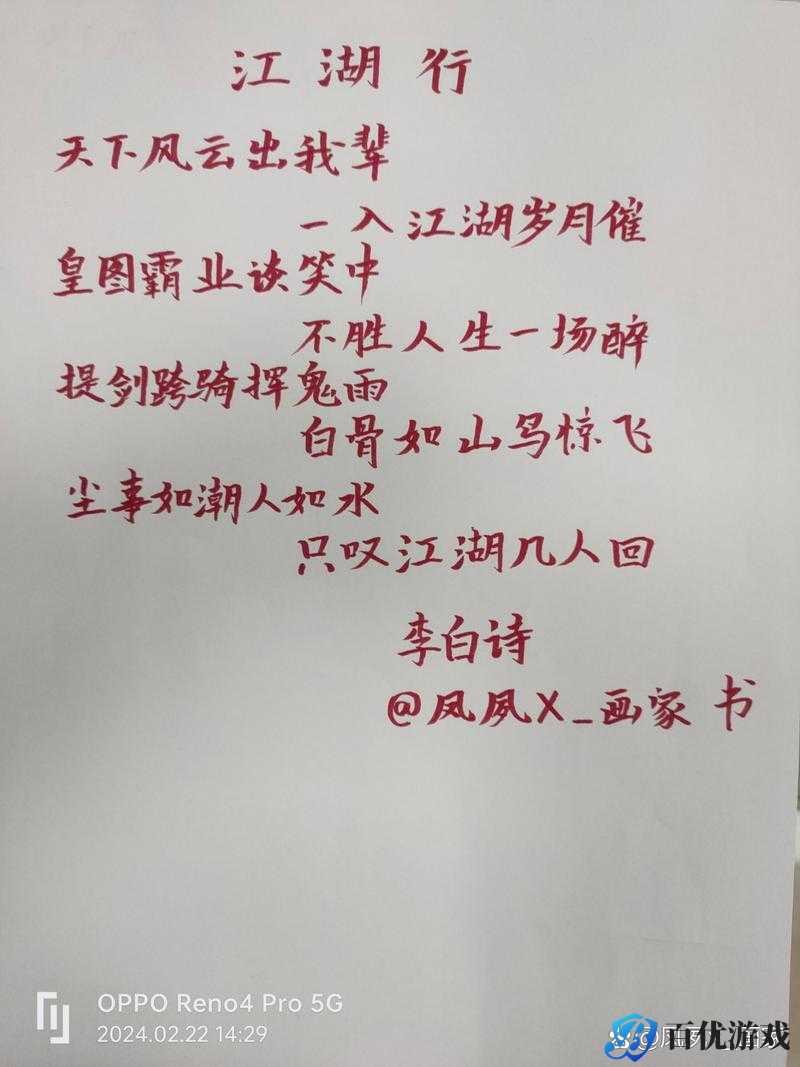 江湖行
天下风云出我辈
一入江湖岁月催
皇图霸业谈笑中
不胜人生一场醉
提剑跨骑挥鬼雨
白骨如山鸟惊飞
尘事如潮人如水
只叹江湖几人回
李白诗
@凤夙X_画家 书
OPPO Reno4 Pro 5G
2024.02.22 14:29
百优游戏